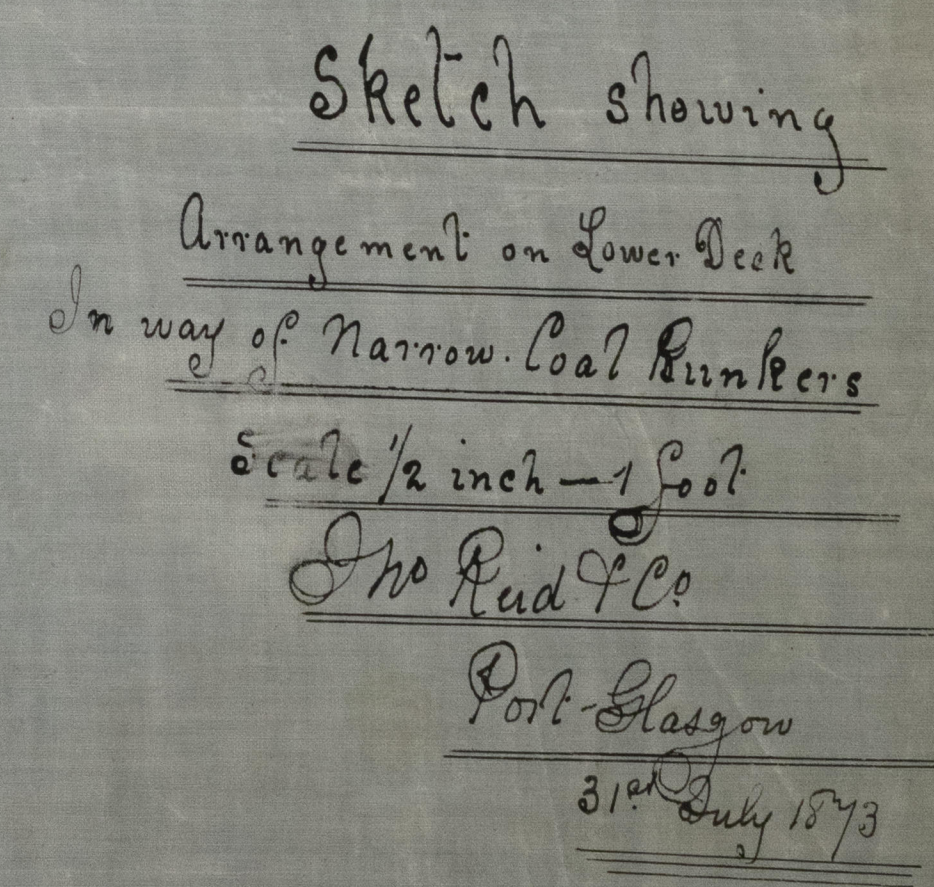 Sketch showing
Arrangement on Lower Deck
In way of Narrow. Coal Bunkers
Scale 1/2 inch — 1 foot
Jno Reid & Co.
Port-Glasgow
31st July 1873